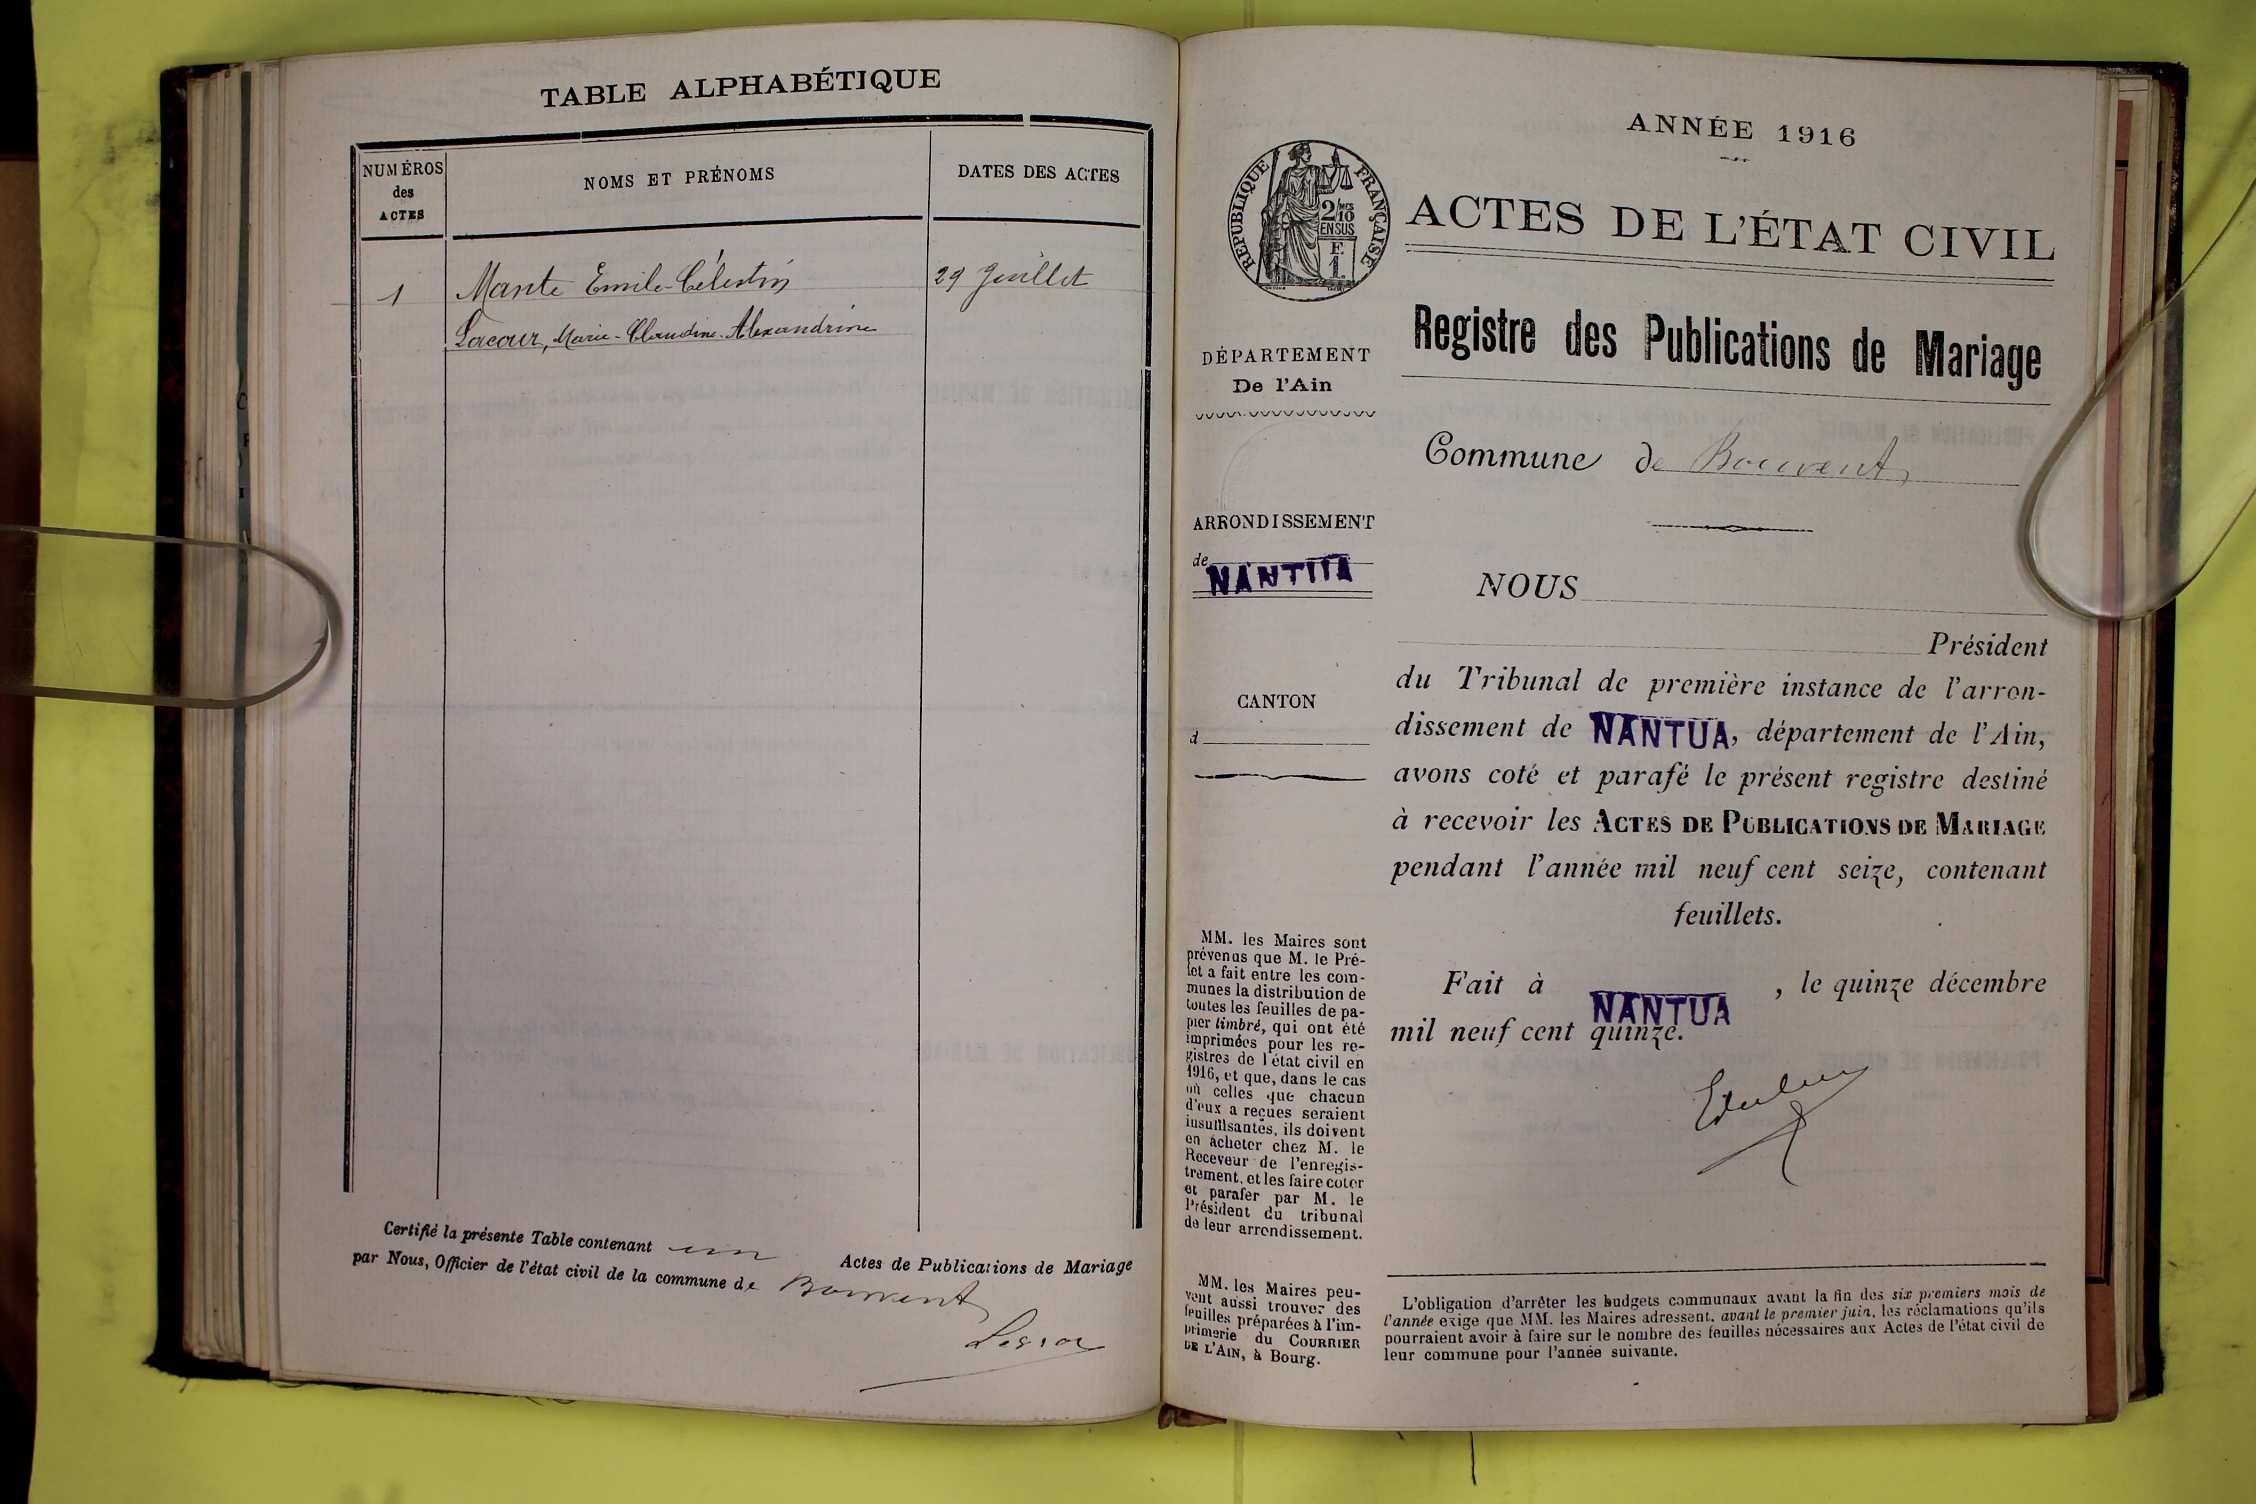 TABLE ALPHABÉTIQUE
NUMÉROS
des
ACTES
NOMS ET PRÉNOMS
DATES DES ACTES
1
Mante Emile-Célestin
29 Juillet
Lacour, Marie-Claudine-Alexandrine
Certifié la présente Table contenant un Actes de Publications de Mariage
par Nous, Officier de l'état civil de la commune de Bouvent
ANNÉE 1916
RÉPUBLIQUE FRANÇAISE
2/10 MES
EN SUS
F.
1.
ACTES DE L'ÉTAT CIVIL
Registre des Publications de Mariage
DÉPARTEMENT
De l'Ain
Commune de Bouvent
ARRONDISSEMENT
de NANTUA
CANTON
d
NOUS
Président
du Tribunal de première instance de l'arron-
dissement de NANTUA, département de l'Ain,
avons coté et parafé le présent registre destiné
à recevoir les ACTES DE PUBLICATIONS DE MARIAGE
pendant l'année mil neuf cent seize, contenant
feuillets.
Fait à NANTUA, le quinze décembre
mil neuf cent quinze.
MM. les Maires sont
prévenus que M. le Pré-
fet a fait entre les com-
munes la distribution de
toutes les feuilles de pa-
pier timbré, qui ont été
imprimées pour les re-
gistres de l'état civil en
1916, et que, dans le cas
où celles que chacun
d'eux a reçues seraient
insuffisantes, ils doivent
en acheter chez M. le
Receveur de l'enregis-
trement, et les faire coter
et parafer par M. le
Président du tribunal
de leur arrondissement.
MM. les Maires peu-
vent aussi trouver des
feuilles préparées à l'im-
primerie du COURRIER
DE L'AIN, à Bourg.
L'obligation d'arrêter les budgets communaux avant la fin des six premiers mois de
l'année exige que MM. les Maires adressent, avant le premier juin, les réclamations qu'ils
pourraient avoir à faire sur le nombre des feuilles nécessaires aux Actes de l'état civil de
leur commune pour l'année suivante.